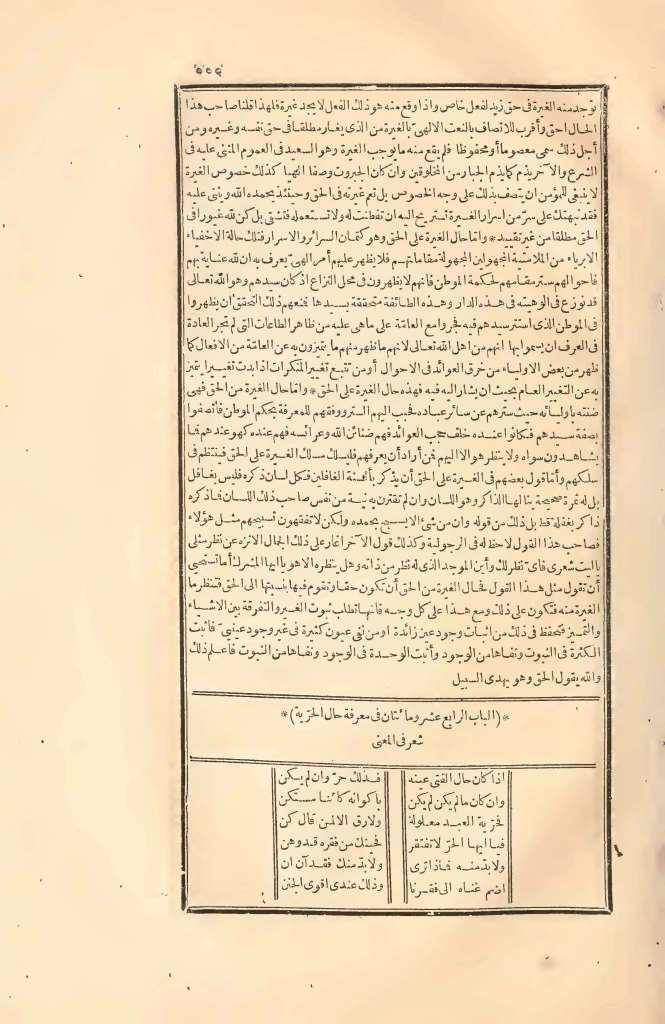 ٥٠٤
توجد منه الغيرة فى حق زيد لفعل خاص واذا وقع منه هو ذلك الفعل لا يجد غيرة فلهذا قلنا صاحب هذا
الحال احق وأقرب للاتصاف بالنعت الالهىّ بالغيرة من الذى يغار مطلقا فى حق نفسه وغيره ومن
أجل ذلك سمى معصوما أو محفوظا فلم يقع منه ما يوجب الغيرة وهو السعيد فى العموم المثنى عليه فى
الشرع والآخر يذم كما يذم الجبار من المخلوقين وان كان الجبروت وصفا الهيا كذلك خصوص الغيرة
لا ينبغى للمؤمن ان يتصف بذلك على وجه الخصوص بل تعم غيرته فى الحق وحينئذ يحمده الله ويثنى عليه
فقد نبهتك على سرّ من اسرار الغيرة تستريح اليه ان تفطنت له ولا تستعمله فتشقى بل كن لله غيورا فى
الحق مطلقا من غير تقييد * واما حال الغيرة على الحق وهو كتمان السرائر والاسرار فتلك حالة الاخفياء
الابرياء من الملامتية المجهولين المجهولة مقاماتهم فلا يظهر عليهم أمر الهىّ يعرف به ان لله عناية بهم
فاحوالهم ستر مقامهم لحكمة الموطن فانهم لا يظهرون فى محل النزاع اذ كان سيدهم وهو الله تعالى
قد نوزع فى الوهيته فى هذه الدار وهذه الطائفة متحققة بسيدها فمنعهم ذلك التحقق أن يظهروا
فى الموطن الذى استتر سيدهم فيه فجروا مع العامّة على ما هى عليه من ظاهر الطاعات التى لم تجر العادة
فى العرف ان يسموا بها انهم من اهل الله تعالى لانهم ما ظهر منهم ما يتميزون به عن العامّة من الافعال كما
ظهر من بعض الاولياء من خرق العوائد فى الاحوال أو من تتبع تغيير المنكرات اذا بدت تغييرا يتميز
به عن التغيير العام بحيث ان يشار اليه فيه فهذه حال الغيرة على الحق * واما حال الغيرة من الحق فهى
ضنته باوليائه حيث سترهم عن سائر عباده فحبب اليهم الستر ووفقهم للمعرفة بحكم الموطن فاتصفوا
بصفة سيدهم فكانوا عنده خلف حجب العوائد فهم ضنائن الله وعرائسه فهم عنده كهو عندهم فما
يشاهدون سواه ولا ينظر هو الا اليهم فمن أراد أن يعرفهم فليسلك مسلك الغيرة على الحق فينتظم فى
سلكهم وأما قول بعضهم فى الغيرة على الحق أن يذكر بألسنة الغافلين فكل لسان ذكره فليس بغافل
بل له ثمرة صحيحة ينالها الذاكر وهو اللسان وان لم تقترن به نية من نفس صاحب ذلك اللسان فماذكره
ذاكر بغفلة قط بل ذلك من قوله وان من شئ الا يسبح بحمده ولكن لا تفقهون تسبيحهم مثل هؤلاء
فصاحب هذا القول لا حظ له فى الرجولية وكذلك قول الآخر اغار على ذلك الجمال الانزه عن نظر مثلى
يا ليت شعرى فاىّ نظر لك وأين الموجد الذى له نظر من ذاته وهل ينظره الا هو يا ايها المشرك أما تستحيى
أن تقول مثل هذا القول فحال الغيرة من الحق أن تكون حقا وتقوم فيها بنسبتها الى الحق فتنظر ما
الغيرة منه فتكون على ذلك ومع هذا على كل وجه فانها تطلب ثبوت الغير والتفرقة بين الاشياء
والتمييز فتحفظ فى ذلك من اثبات وجود عين زائدة او من نفى عيون كثيرة فى غير وجود عينىّ فاثبت
الكثرة فى الثبوت ونفاها من الوجود وأثبت الوحدة فى الوجود ونفاها من الثبوت فاعلم ذلك
والله يقول الحق وهو يهدى السبيل
* (الباب الرابع عشر ومائتان فى معرفة حال الحرّية) *
شعر فى المعنى
اذا كان حال الفتى عينه فذلك حرّ وان لم يكن
وان كان ما لم يكن لم يكن باكوانه كائنا مستكن
فحرّية العبد معلولة ولا رق الا لمن قال كن
فيا ايها الحرّ لا تفتقر فحينك من فقره قد وهن
ولا بدّ منه فماذا ترى ولا بدّ منك فقد آن ان
اضم غناه الى فقرنا وذلك عندى اقوى الجنن